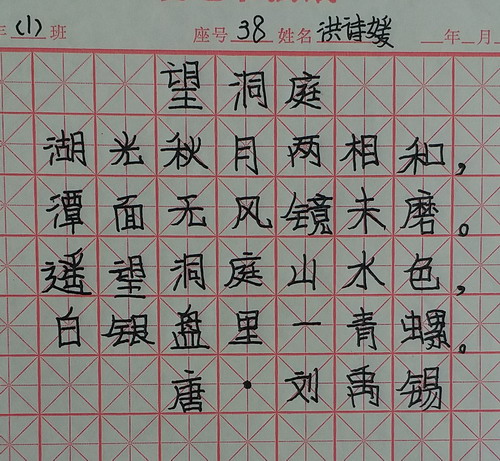 (1)班 座号 38 姓名 洪诗媛 年 月
望洞庭
湖光秋月两相和,
潭面无风镜未磨。
遥望洞庭山水色,
白银盘里一青螺。
唐·刘禹锡